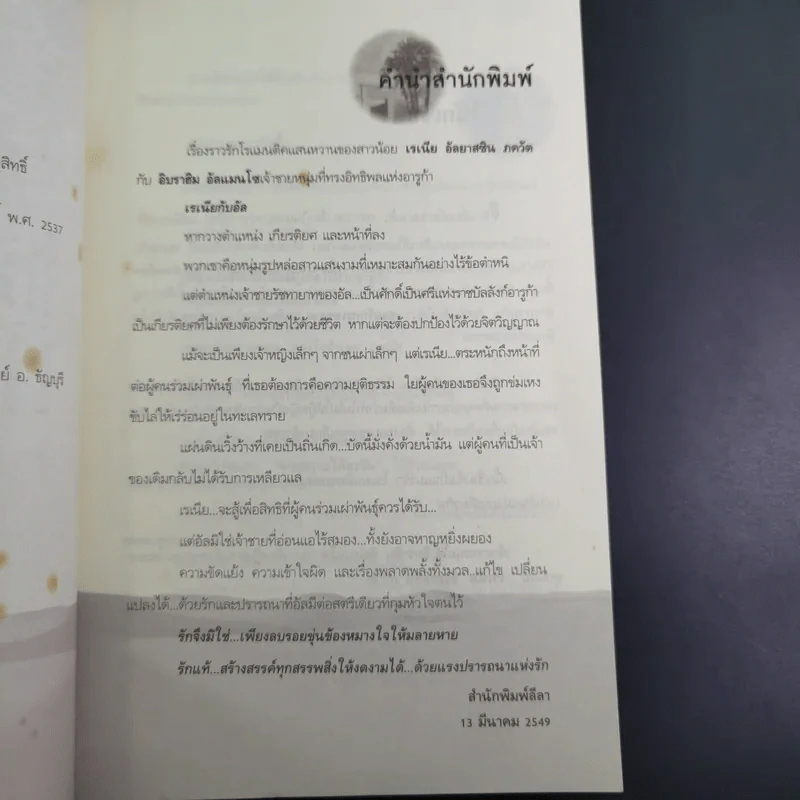 สิทธิ์
พ.ศ. 2537
ย์ อ. ธัญบุรี
คำนำสำนักพิมพ์
เรื่องราวรักโรแมนติคแสนหวานของสาวน้อย เรเนีย อัลยาสซิน ภควัต
กับ อิบราฮิม อัลแมนโซเจ้าชายหนุ่มที่ทรงอิทธิพลแห่งอารูก้า
เรเนียกับอัล
หากวางตำแหน่ง เกียรติยศ และหน้าที่ลง
พวกเขาคือหนุ่มรูปหล่อสาวแสนงามที่เหมาะสมกันอย่างไร้ข้อตำหนิ
แต่ตำแหน่งเจ้าชายรัชทายาทของอัล...เป็นศักดิ์เป็นศรีแห่งราชบัลลังก์อารูก้า
เป็นเกียรติยศที่ไม่เพียงต้องรักษาไว้ด้วยชีวิต หากแต่จะต้องปกป้องไว้ด้วยจิตวิญญาณ
แม้จะเป็นเพียงเจ้าหญิงเล็กๆ จากชนเผ่าเล็กๆ แต่เรเนีย...ตระหนักถึงหน้าที่
ต่อผู้คนร่วมเผ่าพันธุ์ ที่เธอต้องการคือความยุติธรรม ใยผู้คนของเธอจึงถูกข่มเหง
ขับไล่ให้เร่ร่อนอยู่ในทะเลทราย
แผ่นดินเวิ้งว้างที่เคยเป็นถิ่นเกิด...บัดนี้มั่งคั่งด้วยน้ำมัน แต่ผู้คนที่เป็นเจ้า
ของเดิมกลับไม่ได้รับการเหลียวแล
เรเนีย...จะสู้เพื่อสิทธิที่ผู้คนร่วมเผ่าพันธุ์ควรได้รับ...
แต่อัลมิใช่เจ้าชายที่อ่อนแอไร้สมอง...ทั้งยังอาจหาญหยิ่งผยอง
ความขัดแย้ง ความเข้าใจผิด และเรื่องพลาดพลั้งทั้งมวล..แก้ไข เปลี่ยน
แปลงได้...ด้วยรักและปรารถนาที่อัลมีต่อสตรีเดียวที่กุมหัวใจตนไว้
รักจึงมิใช่...เพียงลบรอยขุ่นข้องหมางใจให้มลายหาย
รักแท้...สร้างสรรค์ทุกสรรพสิ่งให้งดงามได้...ด้วยแรงปรารถนาแห่งรัก
สำนักพิมพ์ลีลา
13 มีนาคม 2549